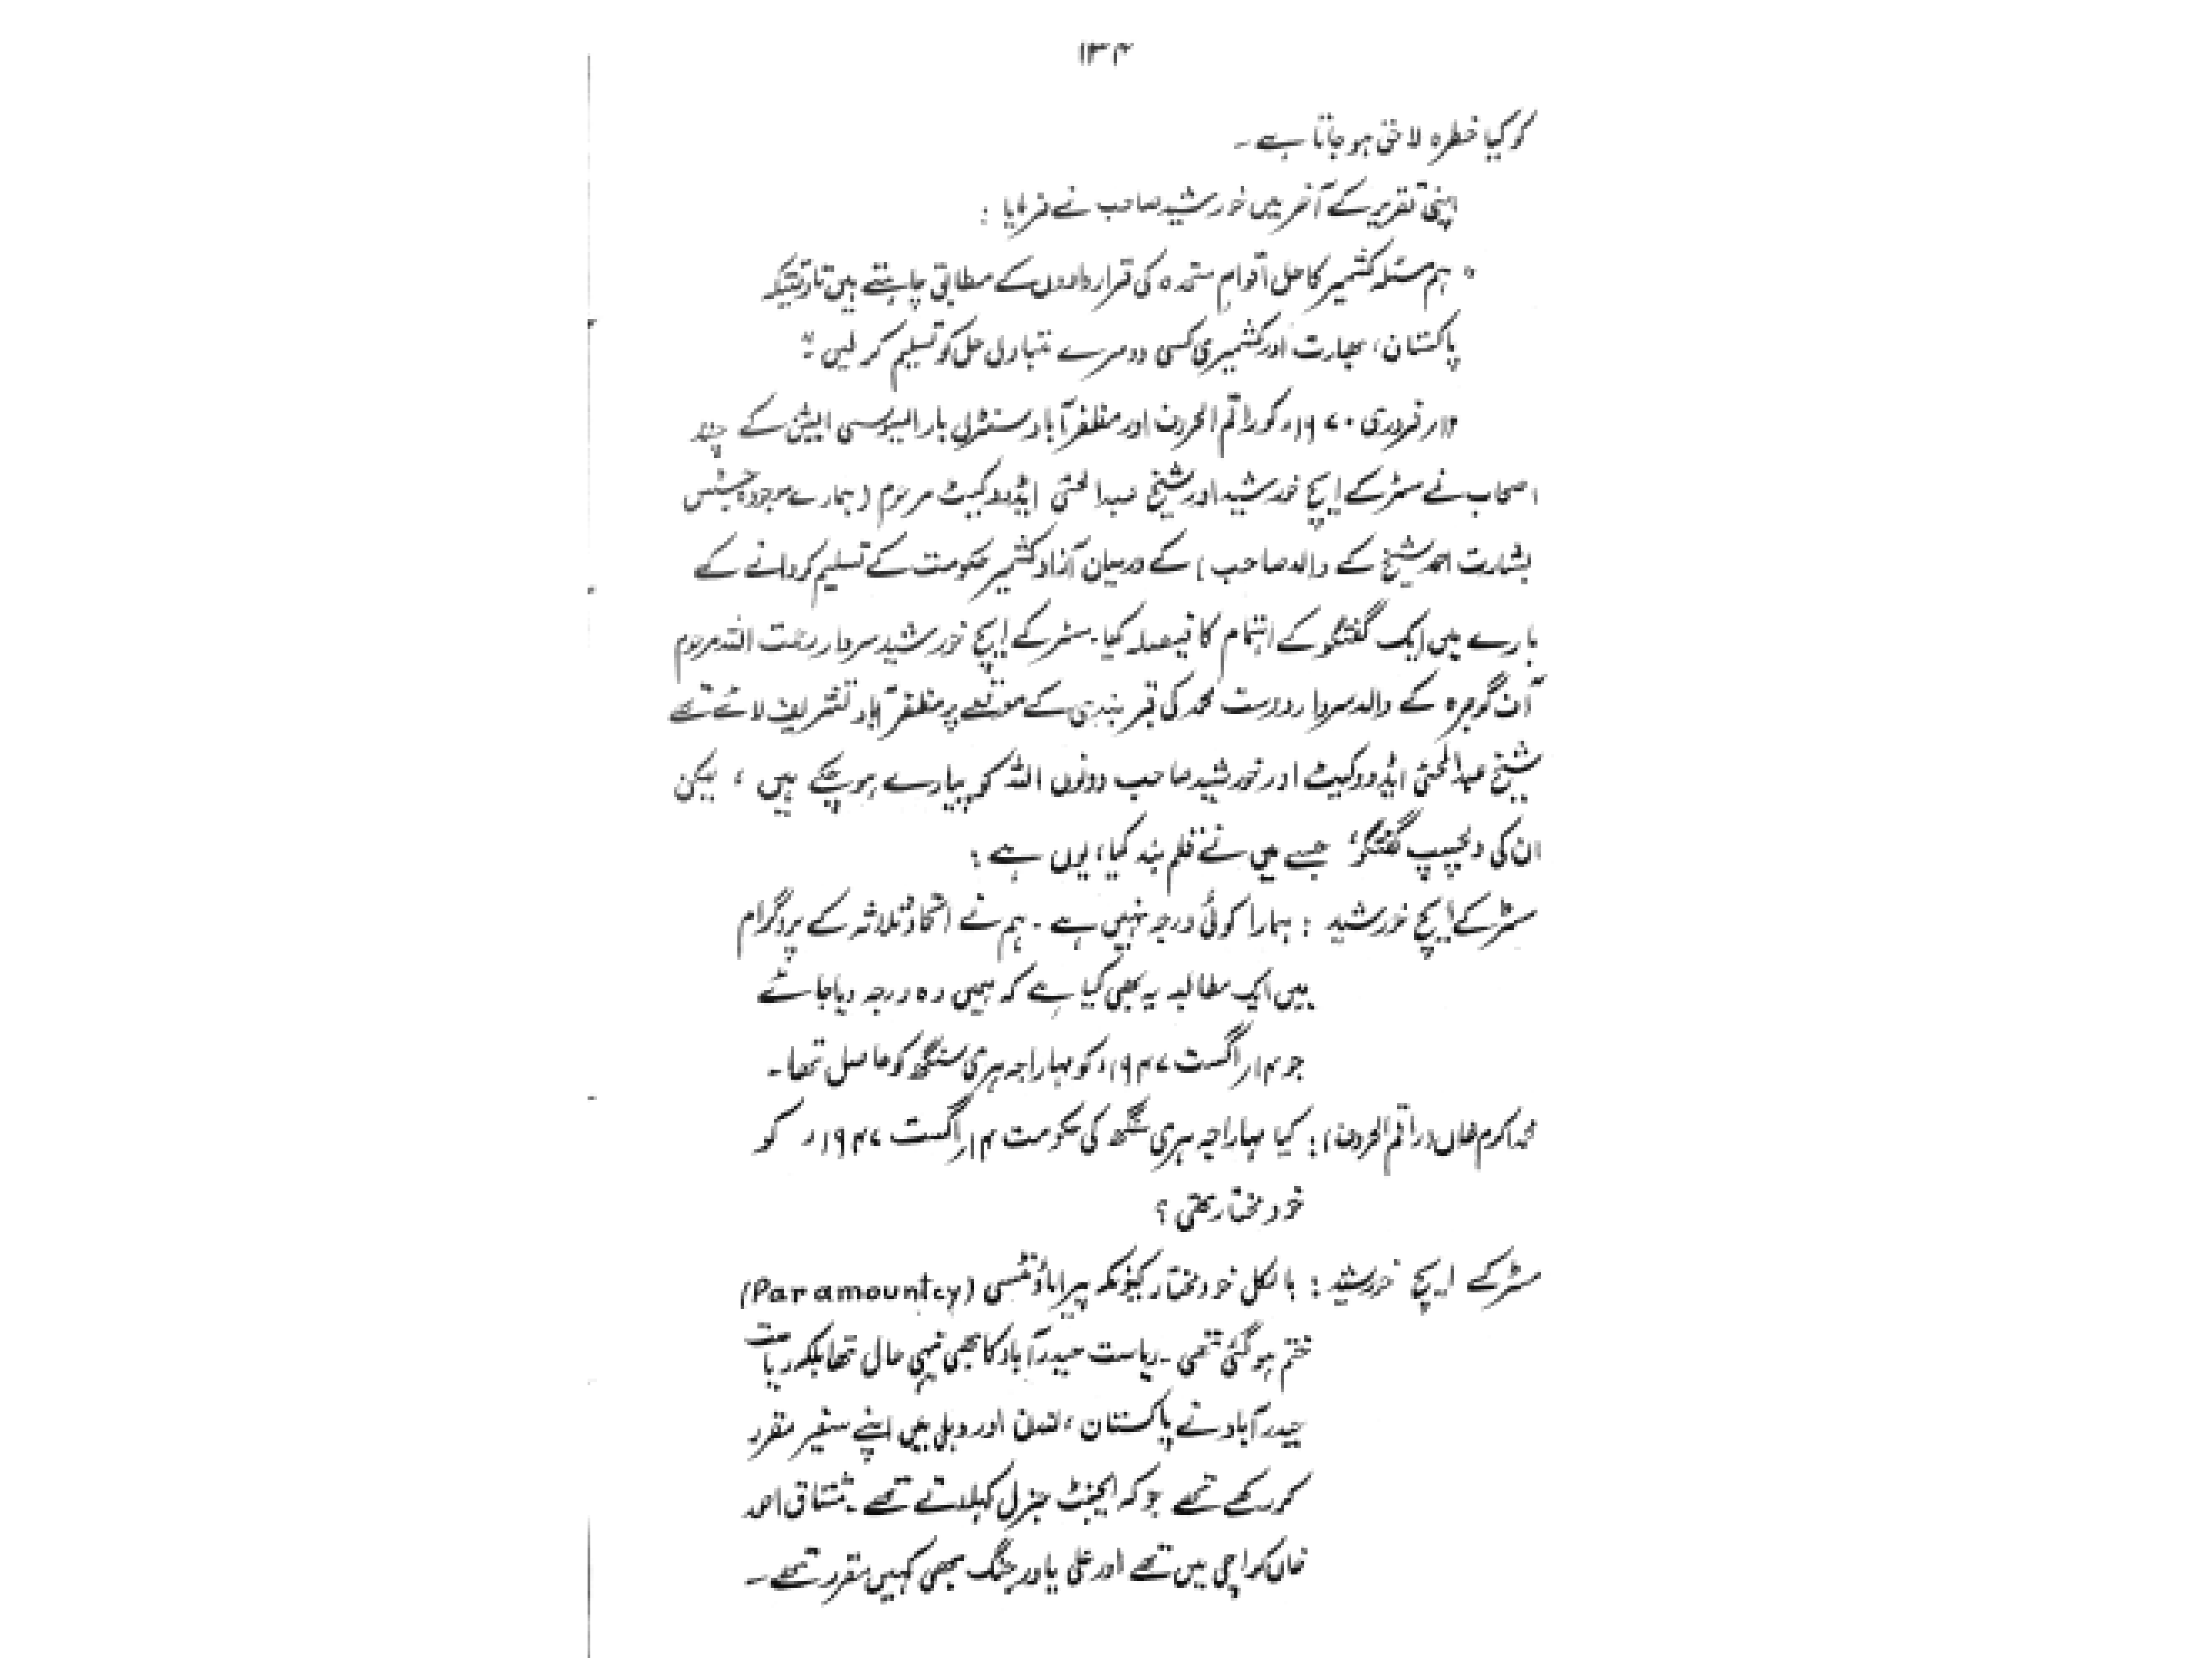 ۱۳۴
کو کیا خطرہ لاحق ہو جاتا ہے۔
اپنی تقریر کے آخر میں خورشید صاحب نے فرمایا :
" ہم مسئلہ کشمیر کا حل اقوام متحدہ کی قراردادوں کے مطابق چاہتے ہیں تاوقتیکہ
پاکستان، بھارت اور کشمیری کسی دوسرے متبادل حل کو تسلیم کر لیں ۔"
فروری ۱۹۷۰ء کو راقم الحروف اور مظفر آباد سنٹرل بار ایسوسی ایشن کے چند
اصحاب نے مسٹر کے ایچ خورشید اور شیخ عبدالحئی ایڈووکیٹ مرحوم (ہمارے موجودہ جسٹس
بشارت احمد شیخ کے والد صاحب) کے درمیان آزاد کشمیر حکومت کے تسلیم کروانے کے
بارے میں ایک گفتگو کے اہتمام کا فیصلہ کیا۔ مسٹر کے ایچ خورشید سردار رحمت اللہ مرحوم
آف گوجرہ کے والد سردار دوست محمد کی قبر بندی کے موقعے پر مظفر آباد تشریف لائے تھے
شیخ عبدالحئی ایڈووکیٹ اور خورشید صاحب دونوں اللہ کو پیارے ہو چکے ہیں ، لیکن
ان کی دلچسپ گفتگو، جسے میں نے قلم بند کیا، یوں ہے :
مسٹر کے ایچ خورشید : ہمارا کوئی درجہ نہیں ہے ۔ ہم نے اتحاد ثلاثہ کے پروگرام
میں ایک مطالبہ یہ بھی کیا ہے کہ ہمیں وہ درجہ دیا جائے
جو ۱۴ر اگست ۱۹۴۷ء کو مہاراجہ ہری سنگھ کو حاصل تھا۔
محمد اکرم خاں (راقم الحروف) : کیا مہاراجہ ہری سنگھ کی حکومت ۱۴ر اگست ۱۹۴۷ء کو
خود مختار تھی ؟
مسٹر کے ایچ خورشید : بالکل خود مختار کیونکہ پیراماؤنٹسی (Paramountcy)
ختم ہو گئی تھی ۔ ریاست حیدر آباد کا بھی یہی حال تھا بلکہ ریاست
حیدر آباد نے پاکستان، لندن اور دہلی میں اپنے سفیر مقرر
کر رکھے تھے جو کہ ایجنٹ جنرل کہلاتے تھے ۔ مشتاق احمد
خاں کراچی میں تھے اور علی یاور جنگ بھی کہیں مقرر تھے ۔